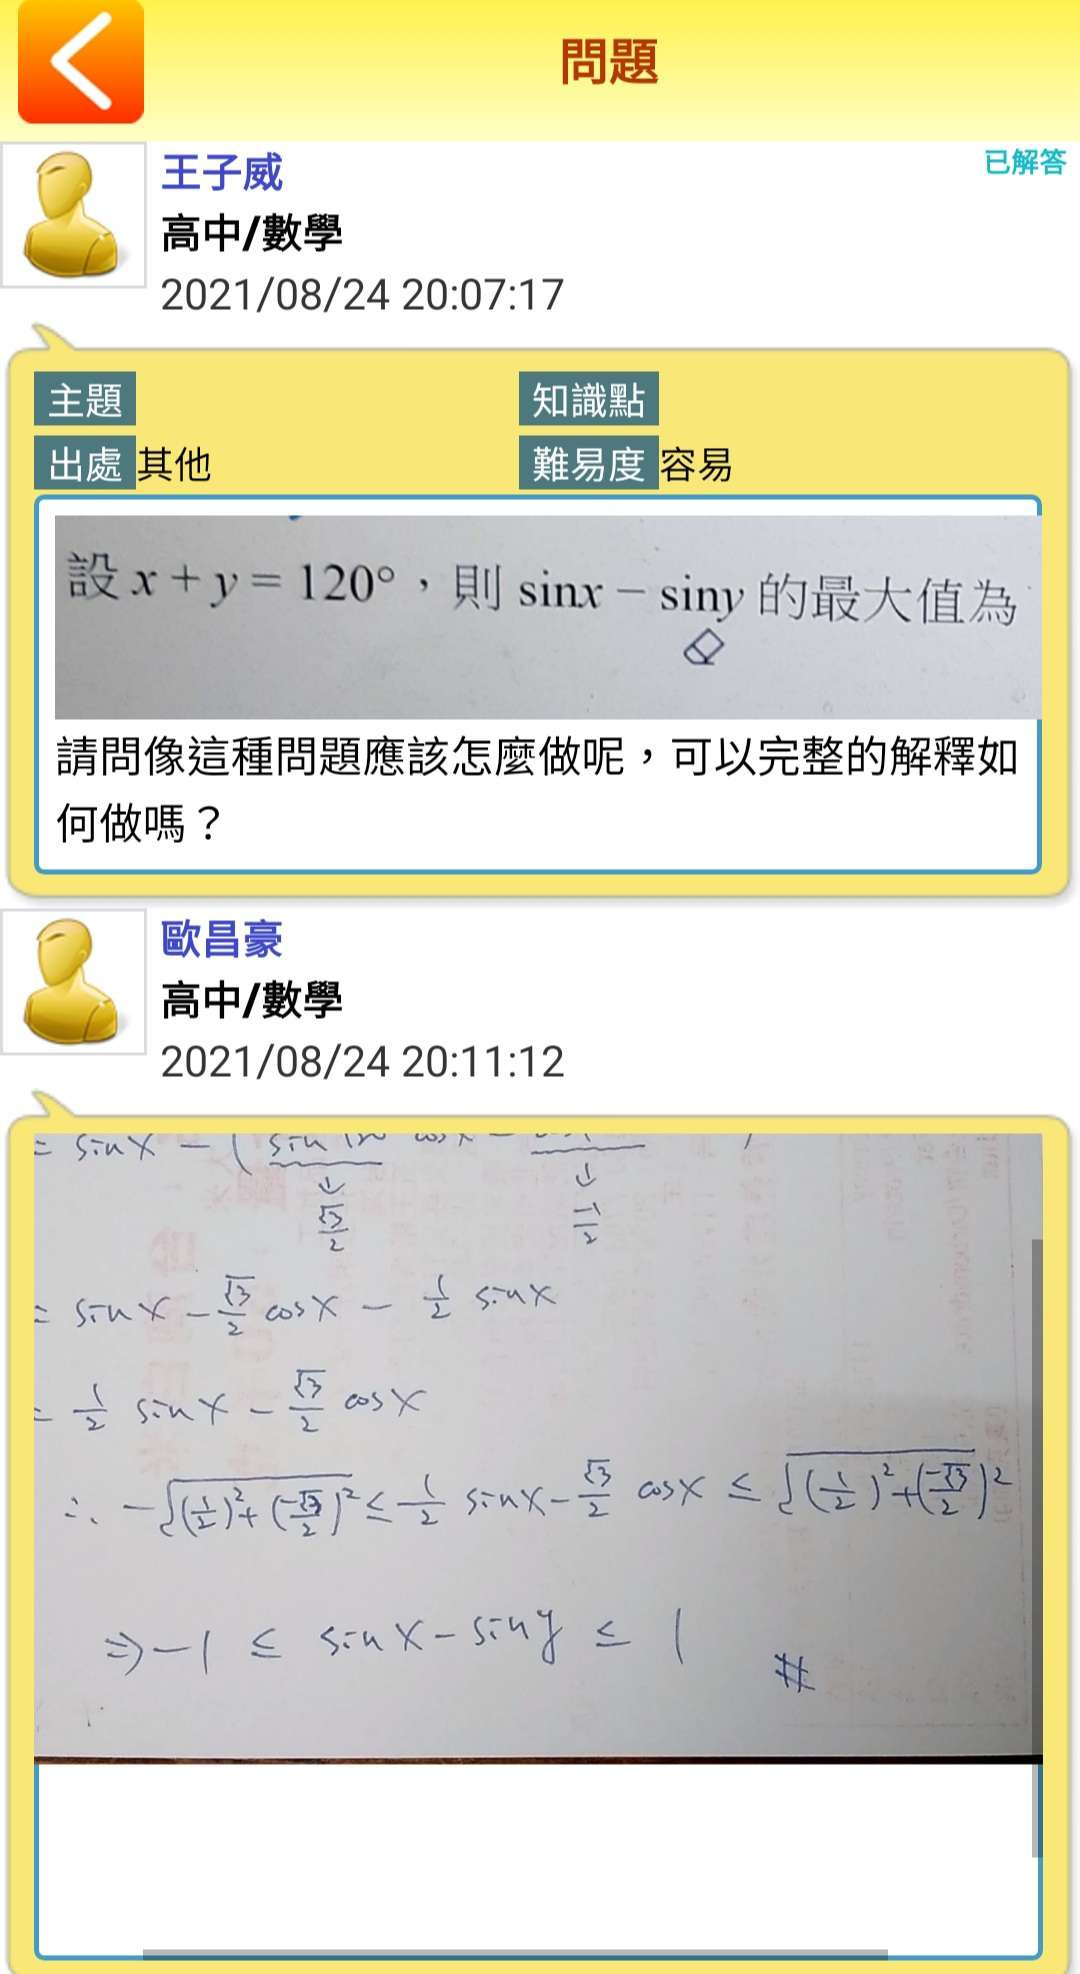 問題
王子威
已解答
高中/數學
2021/08/24 20:07:17
主題
知識點
出處 其他
難易度 容易
設 x + y = 120°，則 sinx − siny 的最大值為
請問像這種問題應該怎麼做呢，可以完整的解釋如
何做嗎？
歐昌豪
高中/數學
2021/08/24 20:11:12
= sinx − (
↓ ↓
√3/2 -1/2
= sinx − √3/2 cosx − 1/2 sinx
= 1/2 sinx − √3/2 cosx
∴ −√((1/2)²+(-√3/2)²) ≤ 1/2 sinx − √3/2 cosx ≤ √((1/2)²+(-√3/2)²)
⇒ −1 ≤ sinx − siny ≤ 1 #